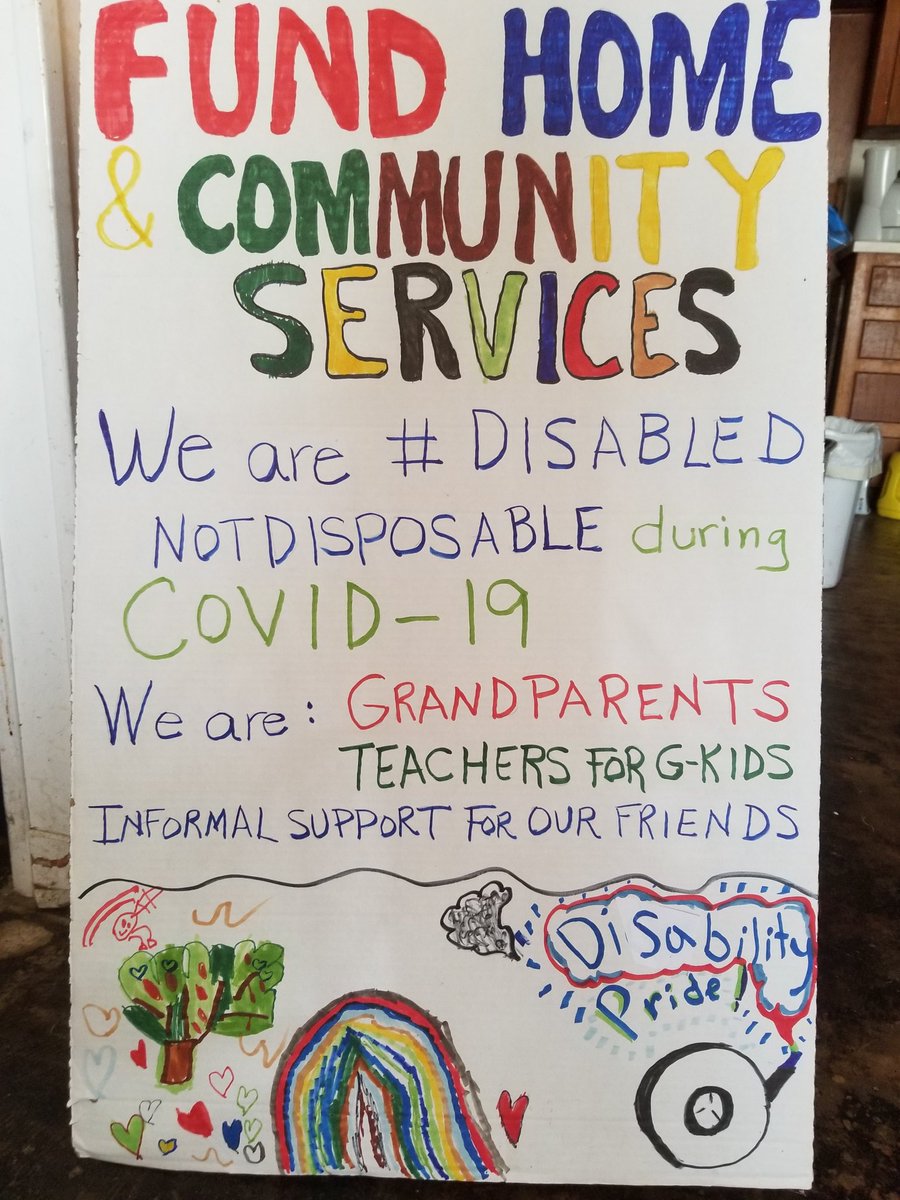 FUND HOME
& COMMUNITY
SERVICES
We are # DISABLED
NOTDISPOSABLE during
COVID-19
We are: GRANDPARENTS
TEACHERS FOR G-KIDS
INFORMAL SUPPORT FOR OUR FRIENDS
DiSability
Pride!